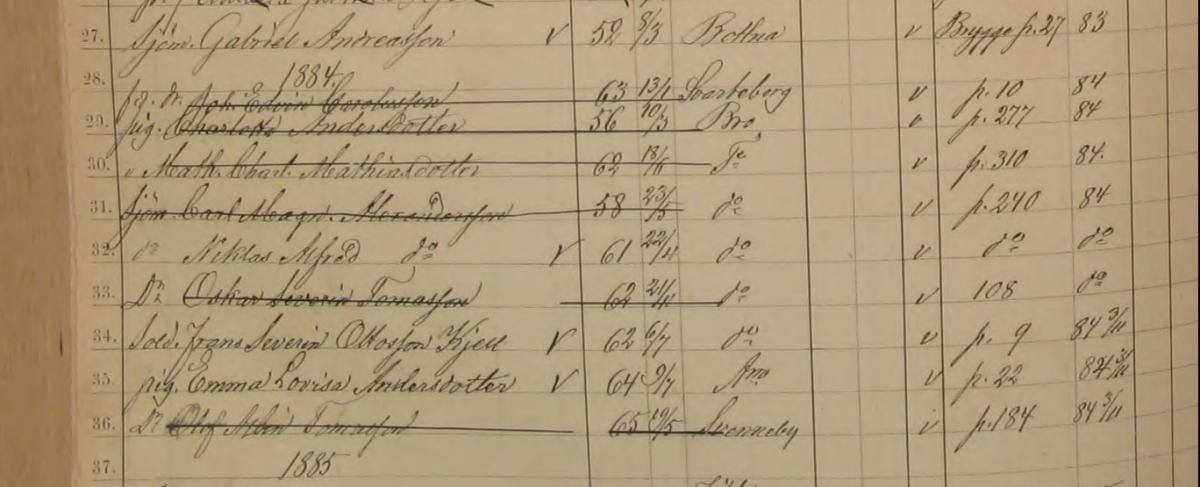 27. Sjöm. Gabriel Andreasson v 52 8/3 Bottna v Brygge p. 27 83
1884.
28. fg. dr. Joh. Edvin Carolusson 63 13/1 Svarteborg v p. 10 84
29. pig. Charlotta Andersdotter 56 10/3 Bro v p. 277 84
30. " Math. Charl. Mathiasdotter 62 18/1 v p. 310 84.
31. Sjöm Carl Magn. Alexandersson 58 23/5 do v p. 240 84
32. do Niklas Alfred do v 61 22/4 do v do do
33. Dr. Oskar Severin Tomasson 62 21/11 do v 108 do
34. Sold. Frans Severin Ottosson Kjell v 62 6/7 do v p. 9 84 3/11
35. pig. Emma Lovisa Andersdotter v 64 9/7 v p. 22 84 3/11
36. Dr Olof Albin Tomasson 65 19/5 Svenneby v p. 184 84 3/11
37. 1885